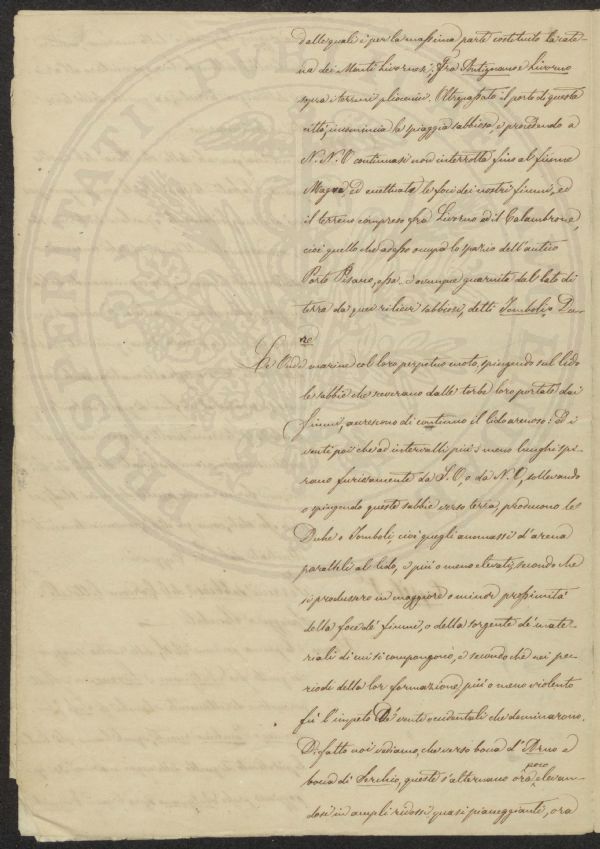 dalle quali è per la massima parte costituito la cate-
na dei Monti Livornesi; fra Antignano e Livorno
sopra i terreni pliocenici. Oltrepassato il porto di queste
città, incomincia la spiaggia sabbiosa, e procedendo a
N. N. O continuasi non interrotta fino al fiume
Magra, ed eccettuate le foci dei nostri fiumi, ed
il terreno compreso fra Livorno ed il Calambrone,
cioè quello che adesso occupa lo spazio dell'antico
Porto Pisano, essa è ovunque guarnita dal lato di
terra da quei rilievi sabbiosi, detti Tomboli o Du-
ne
Le Onde marine col loro perpetuo moto, spingendo sul lido
le sabbie che ricevano dalle torbe loro portate dai
fiumi, accrescono di continuo il lido arenoso: Ed i
venti poi che ad intervalli più o meno lunghi spi-
rano furiosamente da S. O, o da N. O, sollevando
o spingendo queste sabbie verso terra, producono le
Dune o Tomboli cioè quegli ammassi d'arena
paralleli al lido, e più o meno elevati, secondo che
si produssero in maggiore o minor prossimità
della foce de' fiumi, o della sorgente de' mate-
riali di cui si compongono, e secondo che nei pe-
riodi della lor formazione, più o meno violento
fù l'impeto De' venti occidentali che dominarono.
Difatto noi vediamo, che verso bocca d'Arno e
bocca di Serchio, queste s'alternano ora poco elevan-
dosi in ampli ridossi quasi pianeggianti, ora